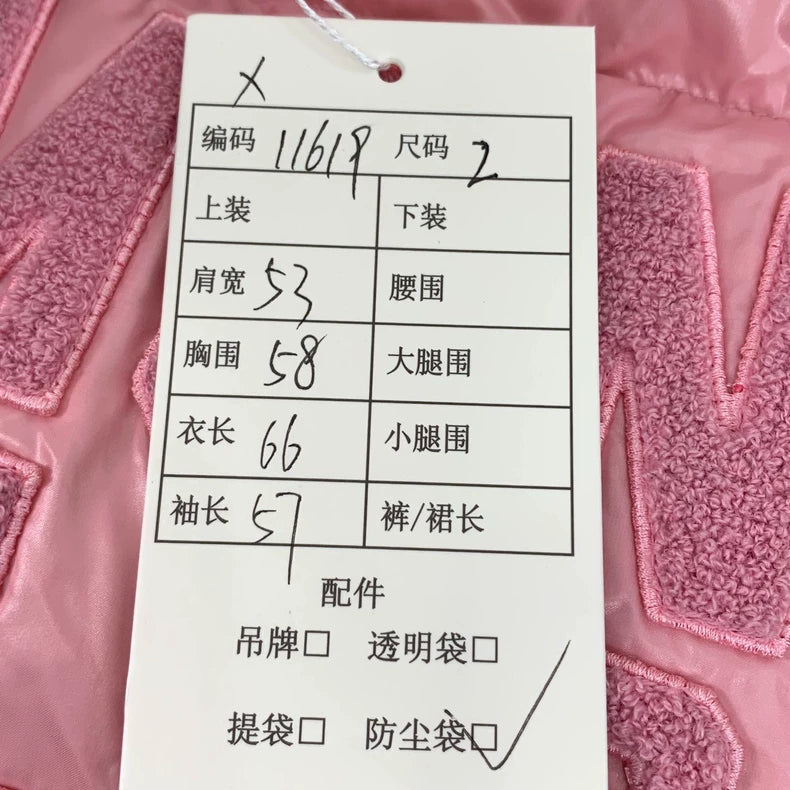 X
编码 11619 尺码 2
上装 下装
肩宽 53 腰围
胸围 58 大腿围
衣长 66 小腿围
袖长 57 裤/裙长
配件
吊牌□ 透明袋□
提袋□ 防尘袋□